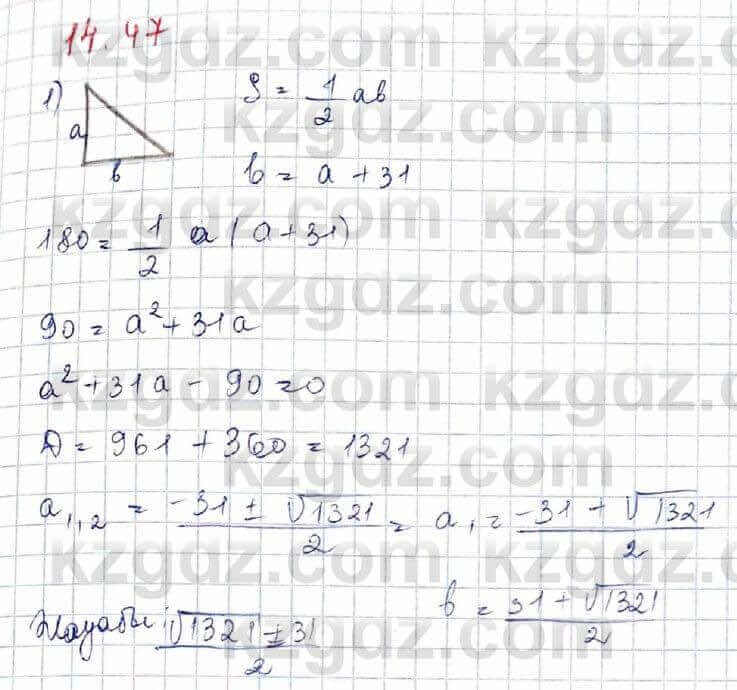 14.47
1) S = 1/2 ab
a
b
b = a + 31
180 = 1/2 a (a + 31)
90 = a² + 31a
a² + 31a - 90 = 0
D = 961 + 360 = 1321
a₁,₂ = (-31 ± √1321)/2 = a₁ = (-31 + √1321)/2
b = (31 + √1321)/2
Жауабы: (√1321 ± 31)/2
kzgdz.com